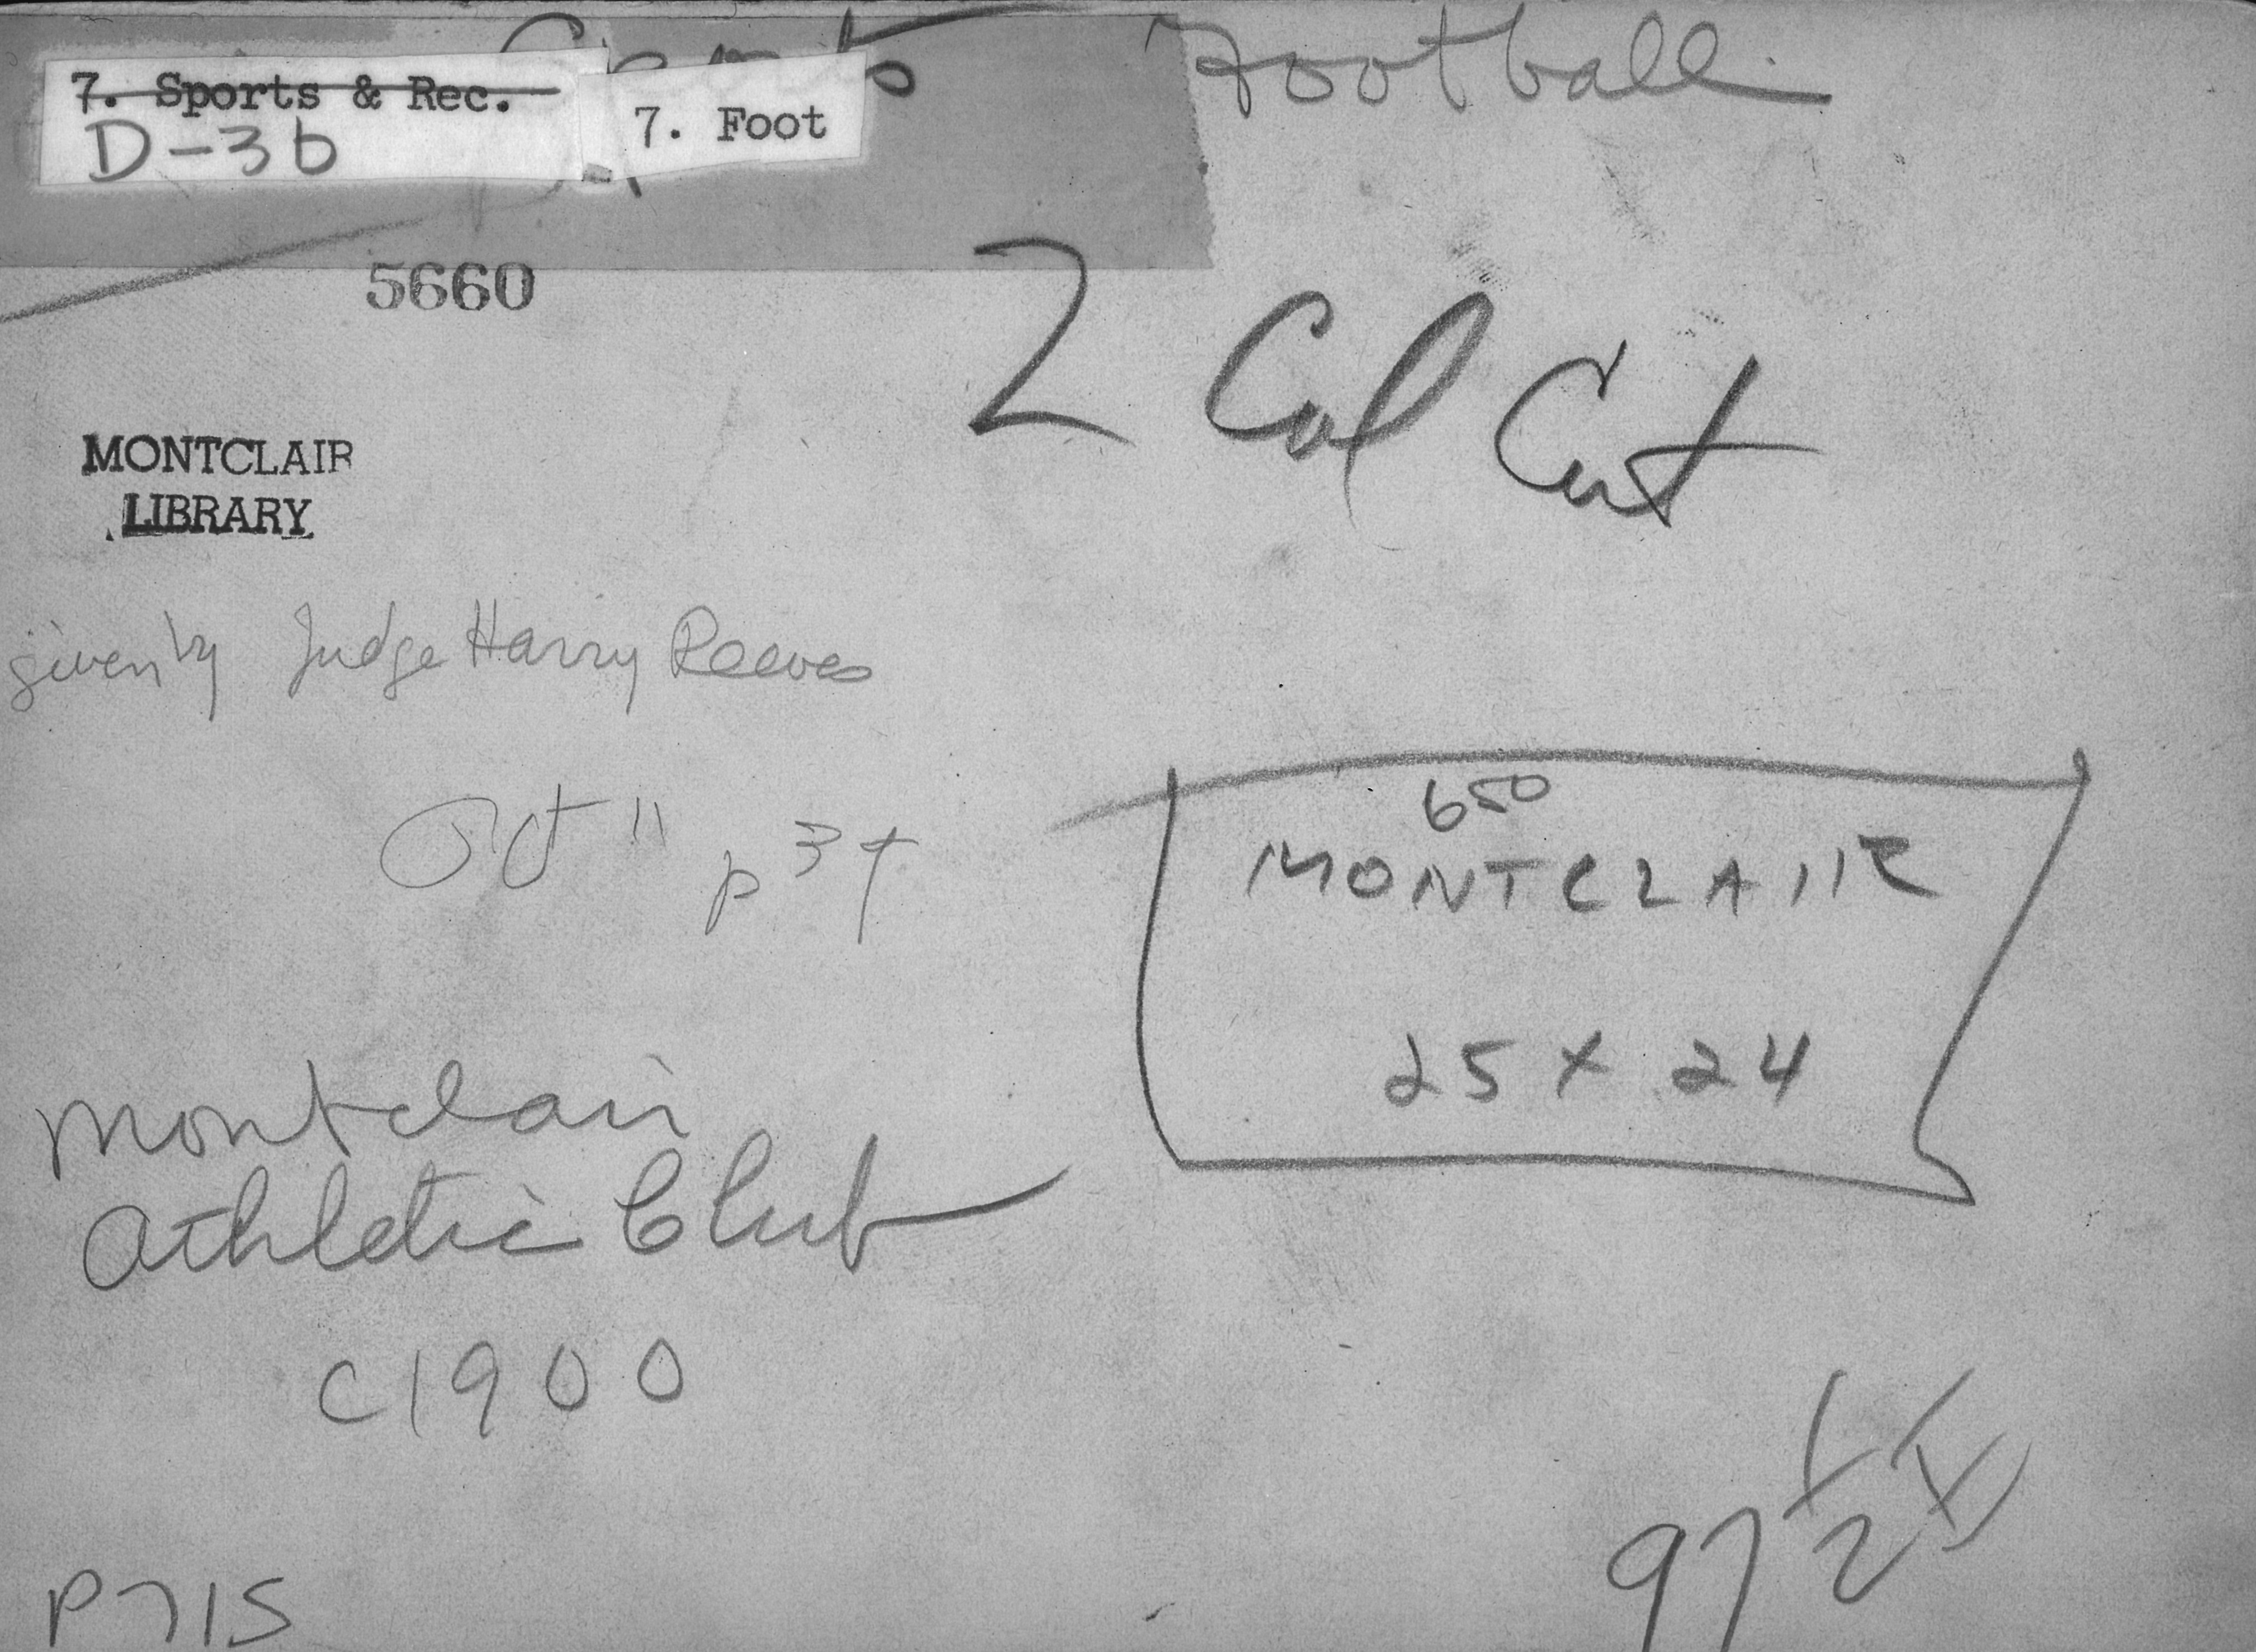 Sports Football
7. Sports & Rec.
D-3b
7. Foot
5660
2 Col Cut
MONTCLAIR
LIBRARY
given by Judge Harry Reeves
p 34
650
MONTCLAIR
25 x 24
Montclair
Athletic Club
c1900
97 1/2
P715